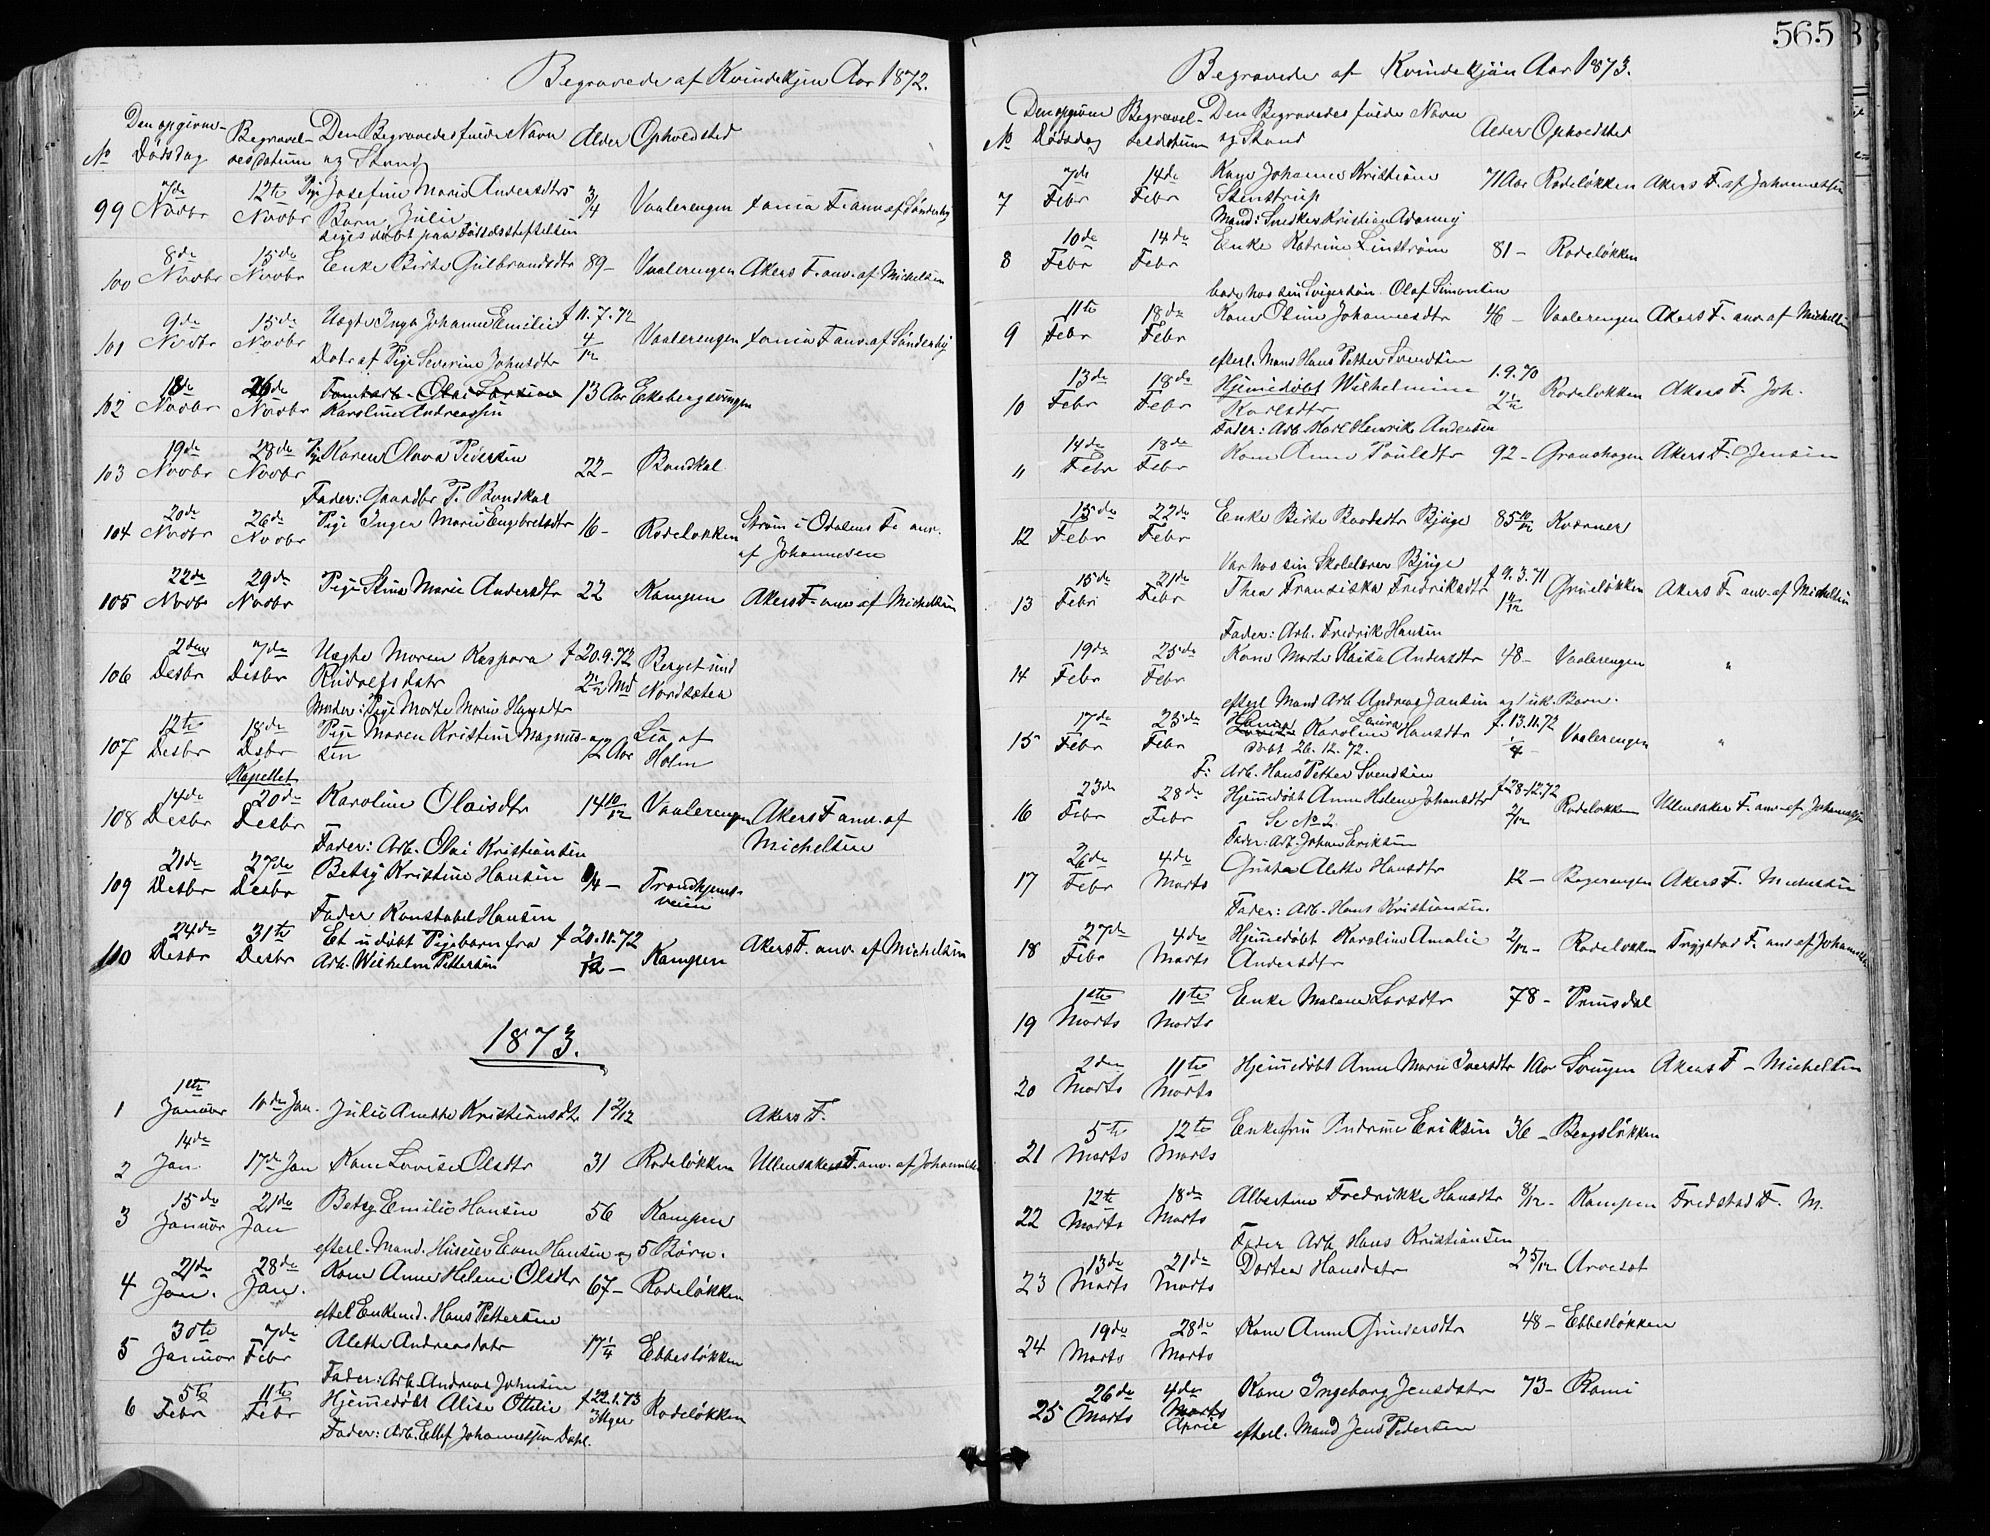 Begravede af Kvindekjøn Aar 1872.
Den opgivne Dødsdag
Begravelsesdatum
Den Begravedes fulde Navn og Stand
Alder
Opholdsted
No
99 7de Novbr 12te Novbr Pige Josefine Marie Andersdtrs Barn Julie 3/4 Vaalerengen
siges døbt paa Fødselsstiftelsen
100 8de Novbr 15de Novbr Enke Birte Gulbrandsdtr 89 - Vaalerengen Akers F. anv. af Michelsen
101 9de Novbr 15de Novbr Uægte Inga Johanne Emilie f 11.7.72 4/12 Vaalerengen F. anv. af Sønderby
Datr af Pige Severine Johnsdtr
102 18de Novbr 26de Novbr Karoline Andreassen 13 Aar Ekebergsvingen
103 19de Novbr 28de Novbr Pige Karen Olava Pedersen 22 - Bundkal
Fader: Gaardbr P. Bundkal
104 20de Novbr 26de Novbr Pige Inger Marie Engebretsdtr 16 - Rodeløkken Strøm i Odalens F. anv. af Johannesen
105 22de Novbr 29de Novbr Pige Stina Marie Andersdtr 22 Kampen Akers F. anv. af Michelsen
106 2den Desbr 7de Desbr Uægte Maren Kaspara Rudolfsdatr f 20.9.72 2 1/2 Md Berget und Nordseter
Moder: Pige Marte Marie Hansdtr
107 12te Desbr 18de Dsbr Pige Maren Kristine Magnussen 72 Aar Lia af Holm
Kapellet
108 14de Desbr 20de Desbr Karoline Olaisdtr 14 10/12 Vaalerengen Akers F. anv. af Michelsen
Fader: Arb. Olai Kristiansen
109 21de Desbr 27de Desbr Betsy Kristine Hansen 3/4 - Trondhjemsveien
Fader Konstabel Hansen
110 24de Desbr 31te Desbr Et udøbt Pigebarn fra Arb. Wilhelm Pettersen f 20.11.72 1/12 - Kampen Akers F. anv. af Michelsen
1873.
1 1ste Januar 10de Jan. Julie Anette Kristiansdtr 1 2/12 Akers F.
2 14de Jan. 17de Jan Kone Lovise Olsdtr 31 Rodeløkken Ullensakers F. anv. af Johannesen
3 15de Januar 21de Jan Betsy Emilie Hansen 56 Kampen
efterl. Mand. Huseier Even Hansen og 5 Børn.
4 21de Jan. 28de Jan. Kone Anne Helene Olsdtr 67 - Rodeløkken
eftel Enkemd. Hans Pettersen
5 30te Januar 7de Febr Alette Andreasdatr 17 1/4 Ebbesløkken
Fader: Arb. Andreas Johnsen
6 5te Febr 11te Febr Hjemmedøbt Alise Ottilie f 22.1.73 3 Uger Rodeløkken
Fader: Arb. Ellef Johannessen Dahl.
565
Begravede af Kvindekjøn Aar 1873.
No
Den opgivne Dødsdag
Begravelsesdatum
Den Begravedes fulde Navn og Stand
Alder
Opholdsted
7 7de Febr 14de Febr Kone Johanne Kristiane Stenstrup 71 Aar Rodeløkken Akers F. af Johannessen
Mand: Snedker Kristian
8 10de Febr 14de Febr Enke Katrine Linstrøm 81 - Rodeløkken
bode hos sin Svigersøn Olaf Simonsen
9 11te Febr 18de Febr Kone Oline Johannesdtr 46 - Vaalerengen Akers F. anv. af Michelsen
efterl. Mand Hans Petter Svendsen
10 13de Febr 18de Febr Hjemmedøbt Wilhelmine Karlsdtr 1.9.70 2 1/2 Rodeløkken Akers F. Joh.
Fader: Arb. Karl Henrik Andersen
11 14de Febr 18de Febr Kone Anne Poulsdtr 92 - Grønshagen Akers F. Jensen
12 15de Febr 22de Febr Enke Birte Baardsdtr Bjúge 85 10/12 Kværner
Var hos sin Skolelærer Bjúge
13 15de Febr 21de Febr Thea Fransiska Fredriksdtr f 9.3.71 Grüneløkken Akers F. anv. af Michelsen
Fader: Arb. Fredrik Hansen
14 19de Febr 25de Febr Kone Marte Kaisa Andersdtr 48 - Vaalerengen "
efterl Mand Arb. Andreas Jansen og 1 uk. Barn.
15 17de Febr 23de Febr Laura Karoline Hansdtr f. 13.11.72 1/4 Vaalerengen "
døbt 26.12.72.
F: Arb. Hans Petter Svendsen
16 23de Febr 28de Febr Hjemmedøbt Anne Helene Johansdtr f 28.12.72 2/12 Rodeløkken Ullensaker F. anv. af Johannessen
Se No 2.
Fader: Arb. Johan Eriksen
17 26de Febr 4de Marts Gusta Alette Hansdtr 12 - Bøgerengen Akers F. Michelsen
Fader: Arb. Hans Kristiansen.
18 27de Febr 4de Marts Hjemmedøbt Karoline Amalie Andersdtr 2/12 - Rodeløkken Trygstad F. anv. af Johannessen
19 1ste Marts 11te Marts Enke Malene Larsdtr 78 - Prinsdal
20 2den Marts 11te Marts Hjemmedøbt Anne Marie Iversdtr 1 Aar Svingen Akers F - Michelsen
21 5te Marts 12te Marts Enkefru Andrine Eriksen 36 - Bergsløkken
22 12te Marts 18de Marts Albertine Fredrikke Hansdtr 8/12 - Kampen Fredstad F. M.
Fader Arb Hans Kristiansen
23 13de Marts 21de Marts Dortea Hansdatr 2 5/12 - Arveset
24 19de Marts 28de Marts Kone Anne Gundersdtr 48 - Ebbesløkken
25 26de Marts 4de April Kone Ingeborg Jensdatr 73 - Romi
efterl. Mand Jens Pedersen